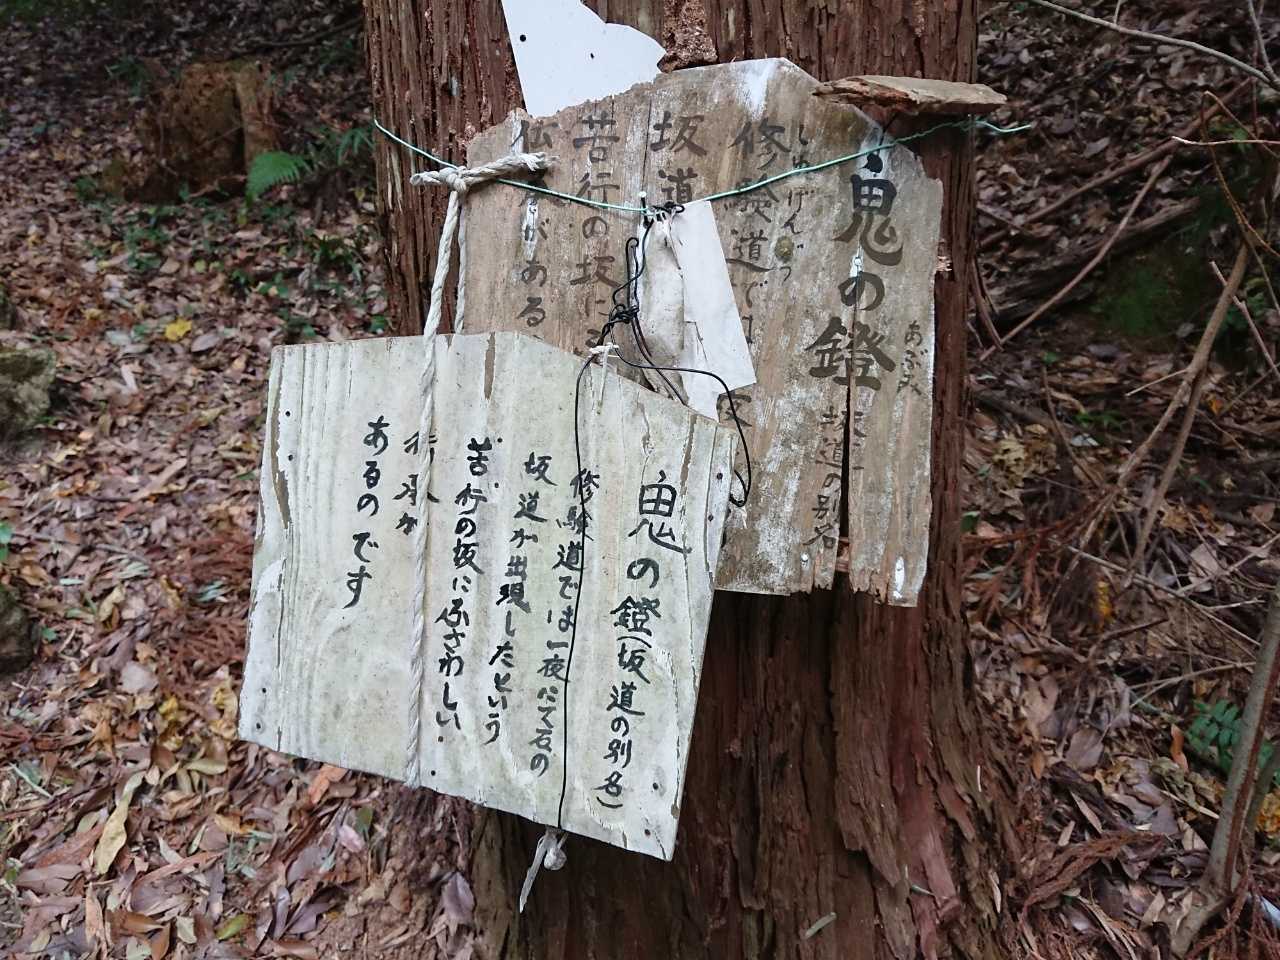 鬼の鐙 坂道の別名
あぶみ
しゅげんどう
修験道では
坂道
苦行の坂に
がある
鬼の鐙(坂道の別名)
修験道では一夜にて石の
坂道が出現したという
苦行の坂にふさわしい
伝承が
あるのです